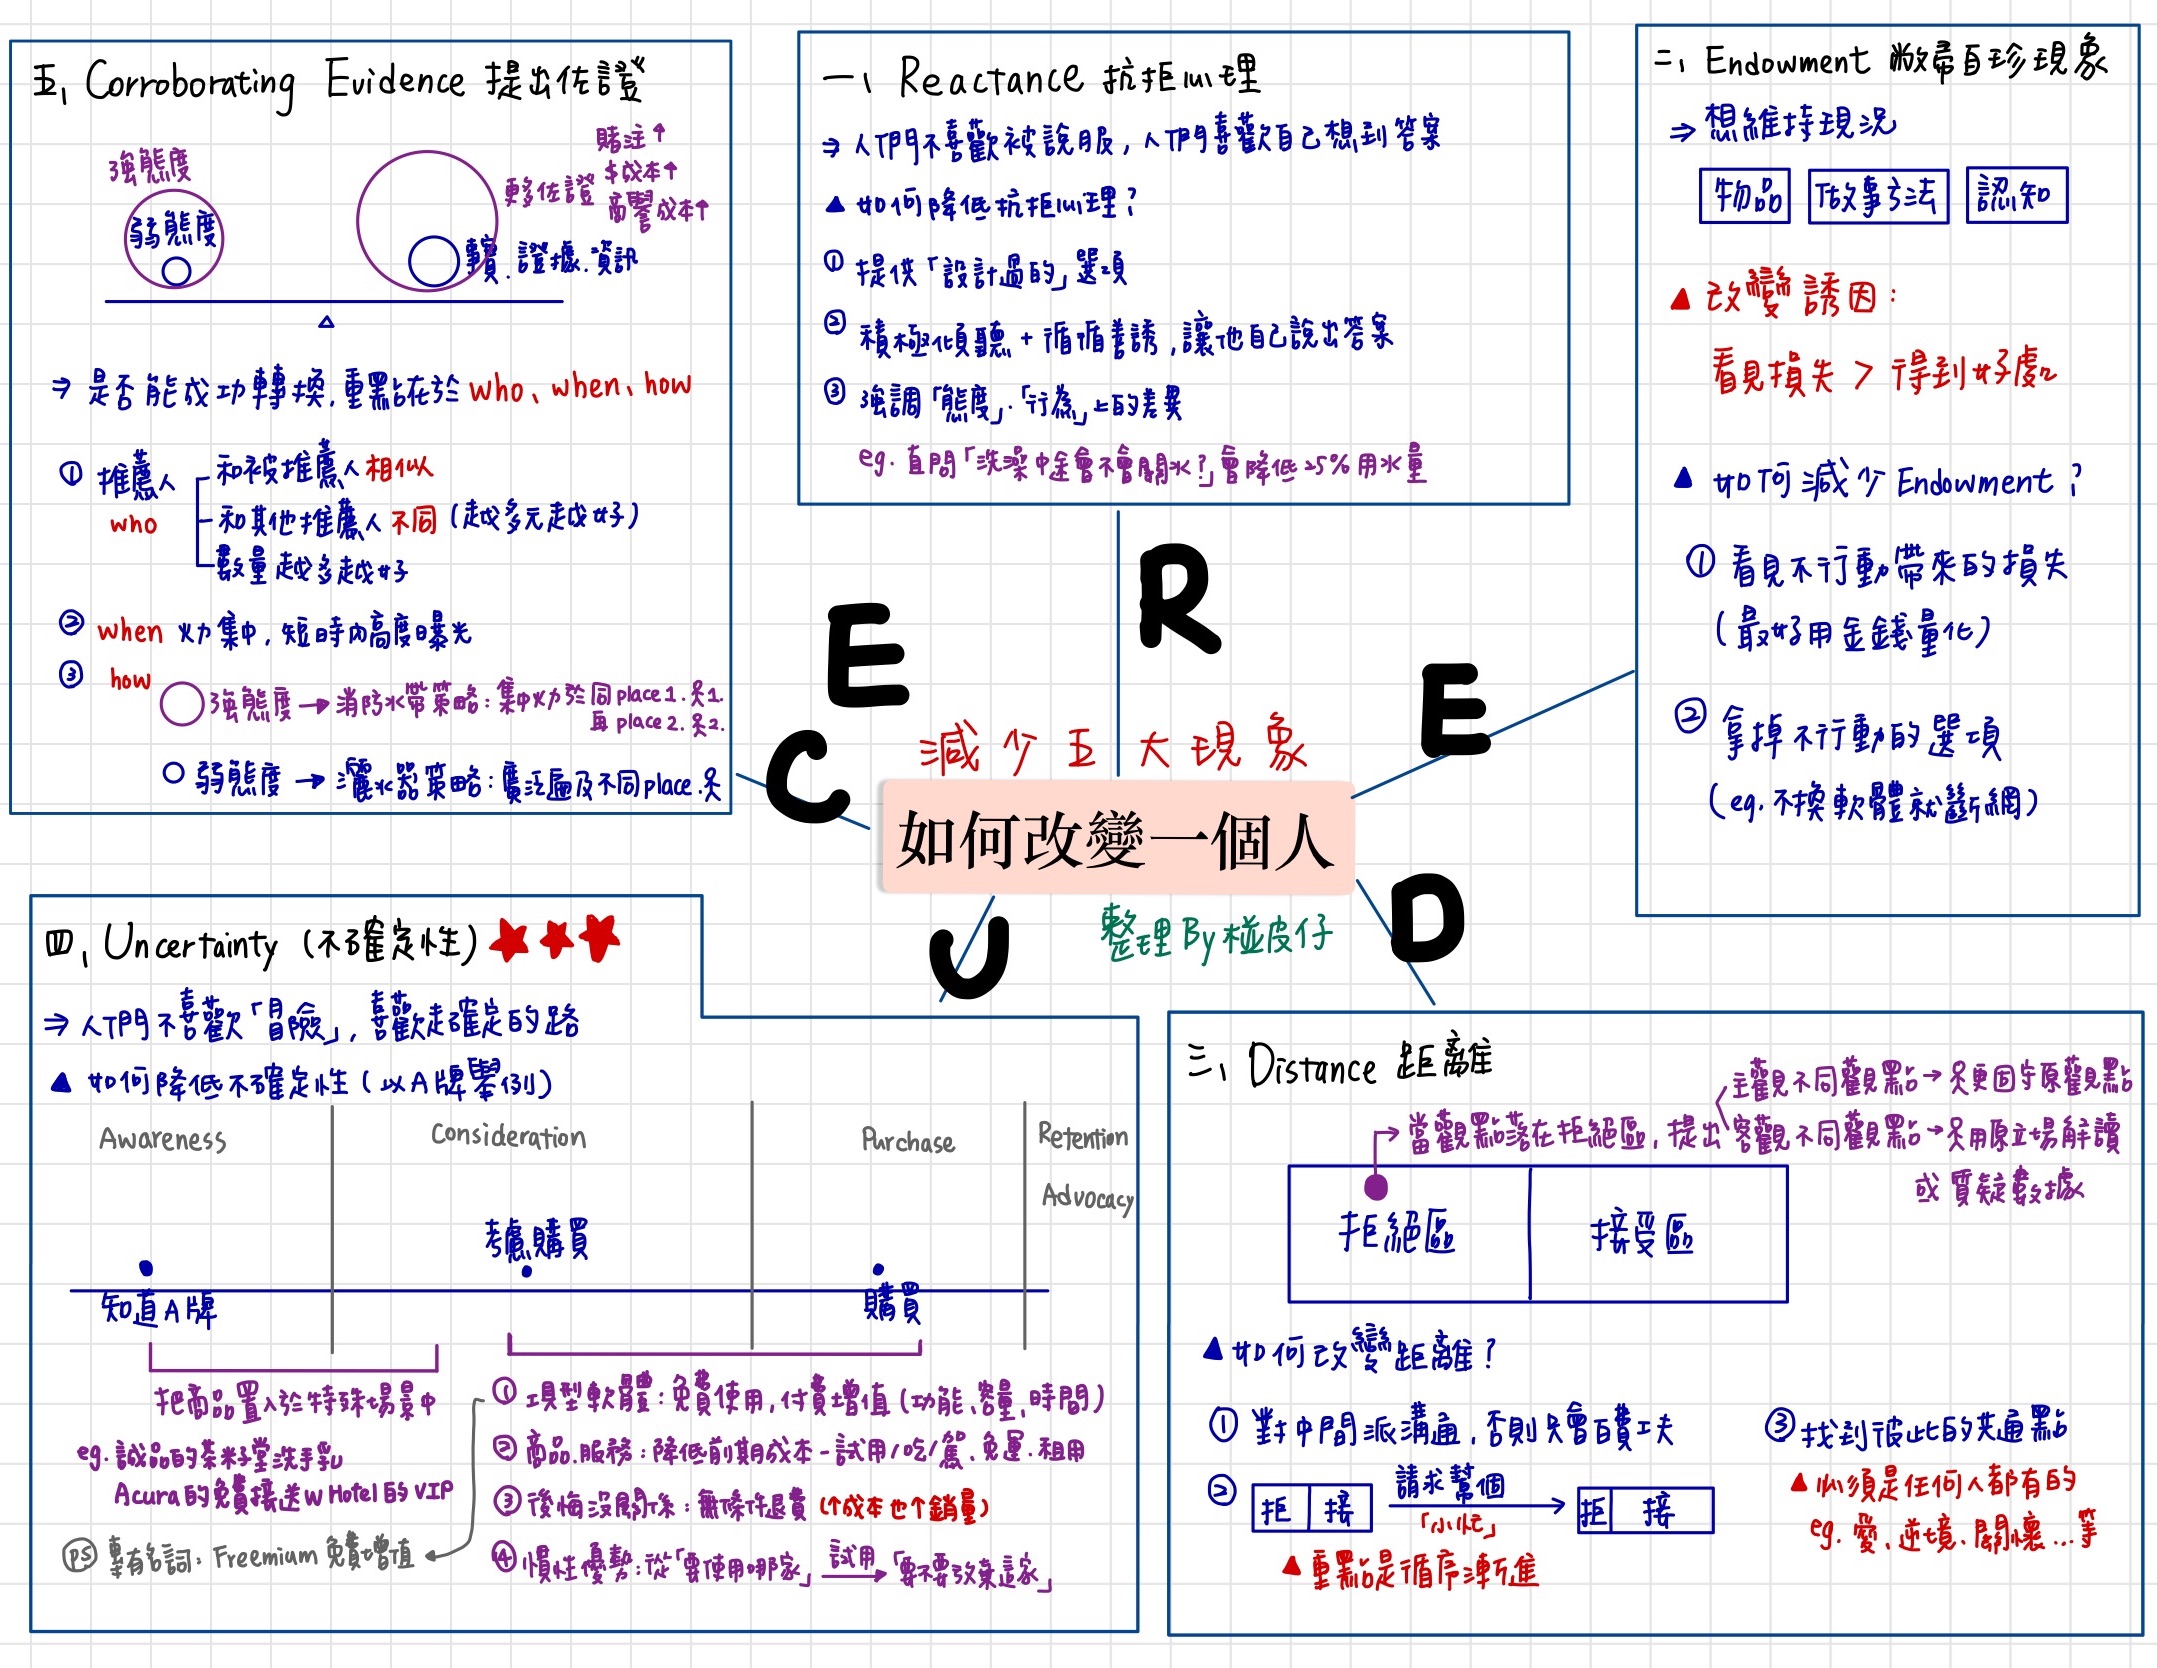 減少五大現象
如何改變一個人
整理By椪皮仔
R
E
D
U
C
E
一、Reactance 抗拒心理
⇒人們不喜歡被說服,人們喜歡自己想到答案
▲如何降低抗拒心理?
① 提供「設計過的」選項
② 積極傾聽+循循善誘,讓他自己說出答案
③ 強調「態度」.「行為」上的差異
eg. 直問「洗澡中途會不會關水?」會降低25%用水量
二、Endowment 敝帚自珍現象
⇒想維持現況
物品
做事方法
認知
▲改變誘因:
看見損失>得到好處
▲如何減少Endowment?
① 看見不行動帶來的損失
(最好用金錢量化)
② 拿掉不行動的選項
(eg.不換軟體就斷網)
三、Distance 距離
主觀不同觀點→只更固守原觀點
當觀點落在拒絕區,提出
客觀不同觀點→只用原立場解讀
或質疑數據
拒絕區
接受區
▲如何改變距離?
① 對中間派溝通,否則只會白費工夫
② 拒 接
請求幫個
「小忙」
拒 接
▲重點是循序漸進
③ 找到彼此的共通點
▲必須是任何人都有的
eg.愛、逆境、關懷...等
四、Uncertainty(不確定性)
⇒人們不喜歡「冒險」,喜歡走確定的路
▲如何降低不確定性(以A牌舉例)
Awareness
Consideration
Purchase
Retention
Advocacy
知道A牌
考慮購買
購買
把商品置入於特殊場景中
eg.誠品的茶籽堂洗手乳
Acura的免費接送W Hotel的VIP
PS 專有名詞:Freemium 免費增值
① 項型軟體:免費使用,付費增值(功能、容量、時間)
② 商品.服務:降低前期成本-試用/吃/駕.免運.租用
③ 後悔沒關係:無條件退費(↑成本也↑銷量)
④ 慣性優勢:從「要使用哪家」
試用
「要不要放棄這家」
五、Corroborating Evidence 提出佐證
強態度
弱態度
更多佐證
賭注↑
$成本↑
商譽成本↑
證據.資訊
⇒是否能成功轉換,重點在於who、when、how
① 推薦人
who
和被推薦人相似
和其他推薦人不同(越多元越好)
數量越多越好
② when 火力集中,短時內高度曝光
③ how
強態度→消防水帶策略:集中火力於同place1.
再place2.
弱態度→灑水器策略:廣泛遍及不同place.